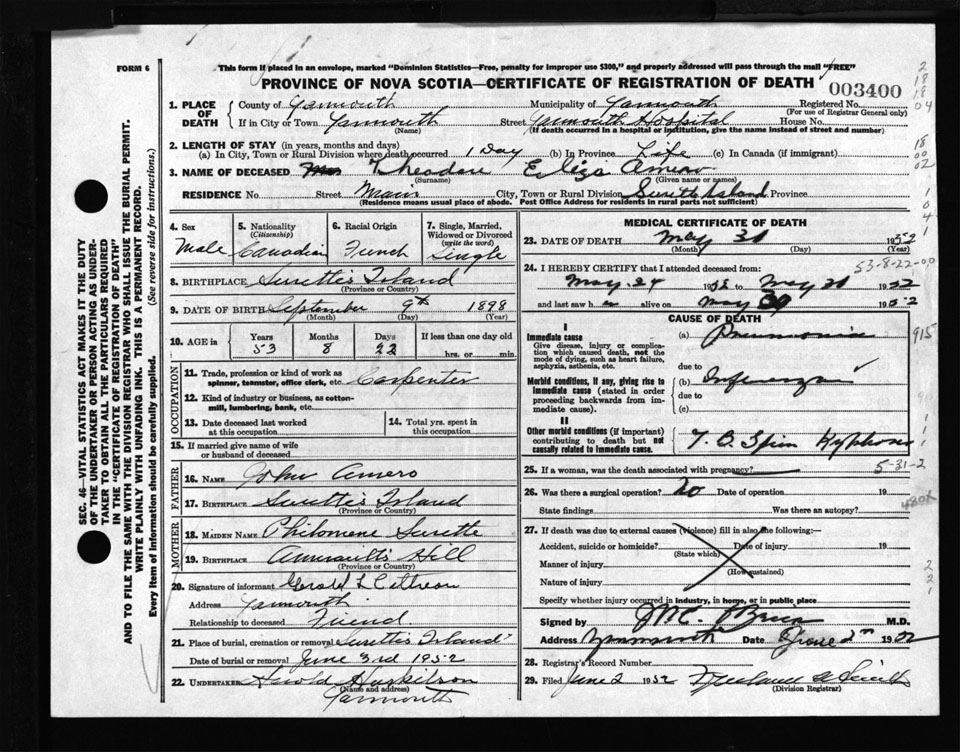 FORM 6
This form if placed in an envelope, marked "Dominion Statistics—Free, penalty for improper use $300," and properly addressed will pass through the mail "FREE"
PROVINCE OF NOVA SCOTIA—CERTIFICATE OF REGISTRATION OF DEATH
003400
1. PLACE OF DEATH
County of Yarmouth Municipality of Yarmouth Registered No.
(For use of Registrar General only)
If in City or Town Yarmouth Street Yarmouth Hospital House No.
(Name) (If death occurred in a hospital or institution, give the name instead of street and number)
2. LENGTH OF STAY (in years, months and days)
(a) In City, Town or Rural Division where death occurred 1 Day (b) In Province Life (c) In Canada (if immigrant)
3. NAME OF DECEASED Theodore Eliza Amero
(Surname) (Given name or names)
RESIDENCE No. Street Main City, Town or Rural Division Surettes Island Province
(Residence means usual place of abode. Post Office Address for residents in rural parts not sufficient)
4. Sex
Male
5. Nationality
(Citizenship)
Canadian
6. Racial Origin
French
7. Single, Married, Widowed or Divorced
(write the word)
Single
8. BIRTHPLACE Surette's Island
(Province or Country)
9. DATE OF BIRTH September 9th 1898
(Month) (Day) (Year)
10. AGE in
Years Months Days If less than one day old
53 8 22 hrs. or min.
OCCUPATION
11. Trade, profession or kind of work as spinner, teamster, office clerk, etc. Carpenter
12. Kind of industry or business, as cotton-mill, lumbering, bank, etc.
13. Date deceased last worked at this occupation
14. Total yrs. spent in this occupation
15. If married give name of wife or husband of deceased
FATHER
16. NAME John Amero
17. BIRTHPLACE Surette's Island
(Province or Country)
MOTHER
18. MAIDEN NAME Philomene Surette
19. BIRTHPLACE Amirault's Hill
(Province or Country)
20. Signature of informant Gerald L
Address Yarmouth
Relationship to deceased Friend
21. Place of burial, cremation or removal Surette's Island
Date of burial or removal June 3rd 1952
22. UNDERTAKER Harold
(Name and address)
Yarmouth
MEDICAL CERTIFICATE OF DEATH
23. DATE OF DEATH May 31 1952
(Month) (Day) (Year)
53-8-22-0,0
24. I HEREBY CERTIFY that I attended deceased from:
May 24 1952 to May 31 1952
and last saw h alive on May 30 1952
CAUSE OF DEATH
I
Immediate cause
Give disease, injury or complication which caused death, not the mode of dying, such as heart failure, asphyxia, asthenia, etc.
(a) Pneumonia
915
due to
Morbid conditions, if any, giving rise to immediate cause (stated in order proceeding backwards from immediate cause).
(b) Influenza
due to
(c)
II
Other morbid conditions (if important) contributing to death but not causally related to immediate cause.
T. B. Spine Kyphosis
25. If a woman, was the death associated with pregnancy?
5-31-2
26. Was there a surgical operation? no Date of operation 19
State findings Was there an autopsy?
480X
27. If death was due to external causes (violence) fill in also the following:
Accident, suicide or homicide? Date of injury 19
(State which)
Manner of injury
(How sustained)
Nature of injury
Specify whether injury occurred in industry, in home, or in public place
Signed by M.D.
Address Yarmouth Date June 2nd 1952
28. Registrar's Record Number
29. Filed June 2 1952
(Division Registrar)
SEC. 46—VITAL STATISTICS ACT MAKES IT THE DUTY
OF THE UNDERTAKER OR PERSON ACTING AS UNDER-
TAKER TO OBTAIN ALL THE PARTICULARS REQUIRED
IN THE "CERTIFICATE OF REGISTRATION OF DEATH"
AND TO FILE THE SAME WITH THE DIVISION REGISTRAR WHO SHALL ISSUE THE BURIAL PERMIT.
WRITE PLAINLY WITH UNFADING INK. THIS IS A PERMANENT RECORD.
Every item of information should be carefully supplied. (See reverse side for instructions.)